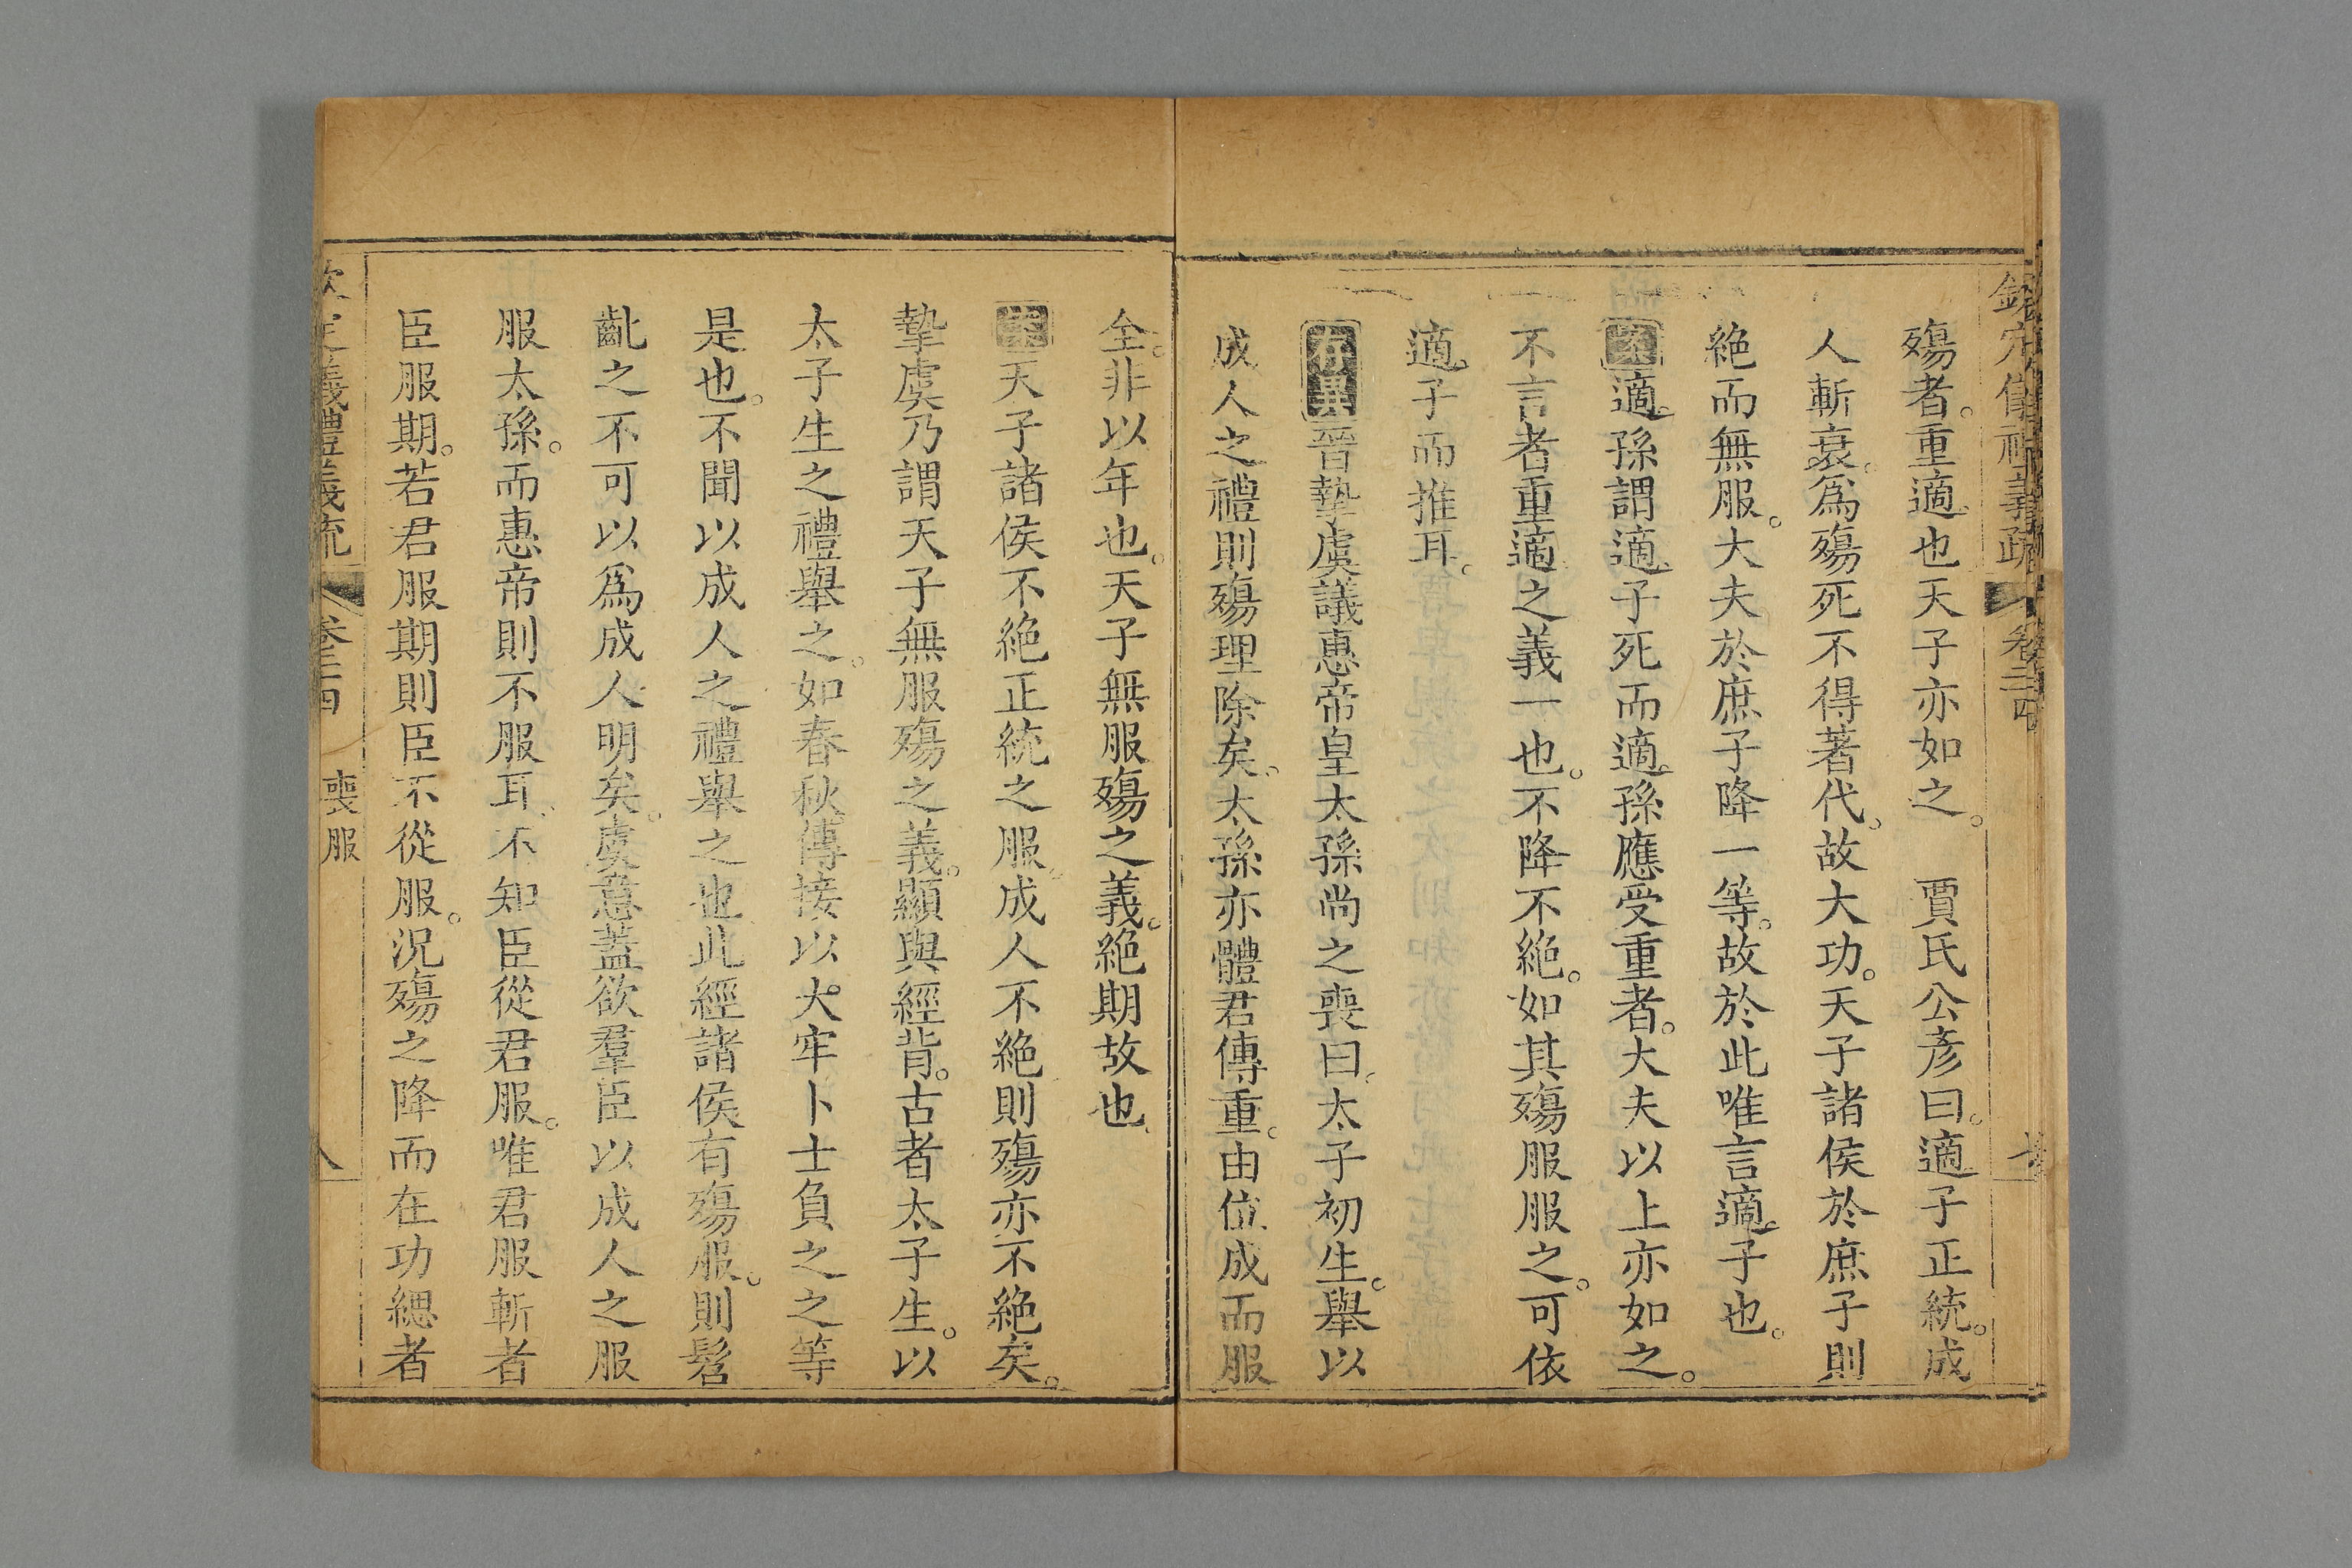 欽定儀禮義疏 卷二十四
殤者。重適也天子亦如之。 賈氏公彦曰。適子正統。成
人斬衰。爲殤死不得著代。故大功。天子諸侯於庶子則
絶而無服。大夫於庶子降一等。故於此唯言適子也。
案適孫謂適子死而適孫應受重者。大夫以上亦如之。
不言者重適之義一也。不降不絶。如其殤服服之。可依
適子而推耳。
存異晉摯虞議惠帝皇太孫尚之喪曰。太子初生。舉以
成人之禮則殤理除矣。太孫亦體君傳重。由位成而服
全。非以年也。天子無服殤之義。絶期故也。
案天子諸侯不絶正統之服。成人不絶則殤亦不絶矣。
摯虞乃謂天子無服殤之義。顯與經背。古者太子生。以
太子生之禮舉之。如春秋傳接以大牢卜士負之之等
是也。不聞以成人之禮舉之也此經諸侯有殤服。則髫
齔之不可以爲成人明矣。虞意蓋欲羣臣以成人之服
服太孫。而惠帝則不服耳。不知臣從君服。唯君服斬者
臣服期。若君服期則臣不從服。况殤之降而在功緦者
欽定義禮義疏 卷二十四 喪服